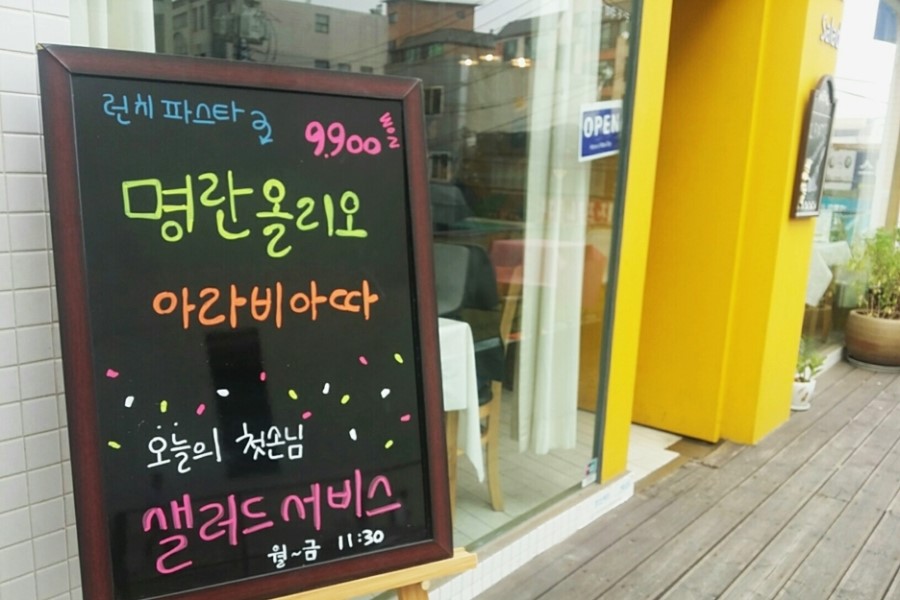 런치 파스타 2
9.900 won
명란올리오
아라비아따
오늘의 첫손님
샐러드 서비스
월~금 11:30
OPEN